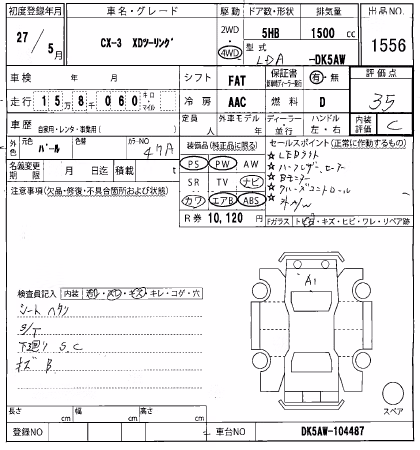 初度登録年月 車名・グレード 駆動 ドア数・形状 排気量 出品NO.
27/5月 CX-3 XDツーリング 2WD・4WD 5HB 1500cc 1556
型式 LDA -DK5AW
車検 年 月 シフト FAT 保証書 有・無 評価点
走行 158千060 キロ・マイル 冷房 AAC 燃料 D 35
車歴 自家用・レンタ・事業用( ) 定員 人 外車モデル 年 ディーラー・並行 ハンドル 左・右 内装評価 C
外色 元色 パール 色替 カラーNO 47A 装備品(純正品に限る) セールスポイント(正常に作動するもの)
名義変更期限 月 日迄 積載 t PS PW AW ☆LEDライト
注意事項(欠品・修復・不具合箇所および状態) SR TV ナビ ☆ハーフレザー、ヒーター
カワ エアB ABS ☆Bモニター
R券 10,120 円 ☆クルーズコントロール
Fガラス トビA・キズ・ヒビ・ワレ・リペア跡
A1
検査員記入 内装 汚レ・スレ・キズ・キレ・コゲ・穴
シートヘタリ
S/T
下廻り S.C
キズB
スペア
長さ cm 幅 cm 高さ cm
登録NO 車台NO DK5AW-104487